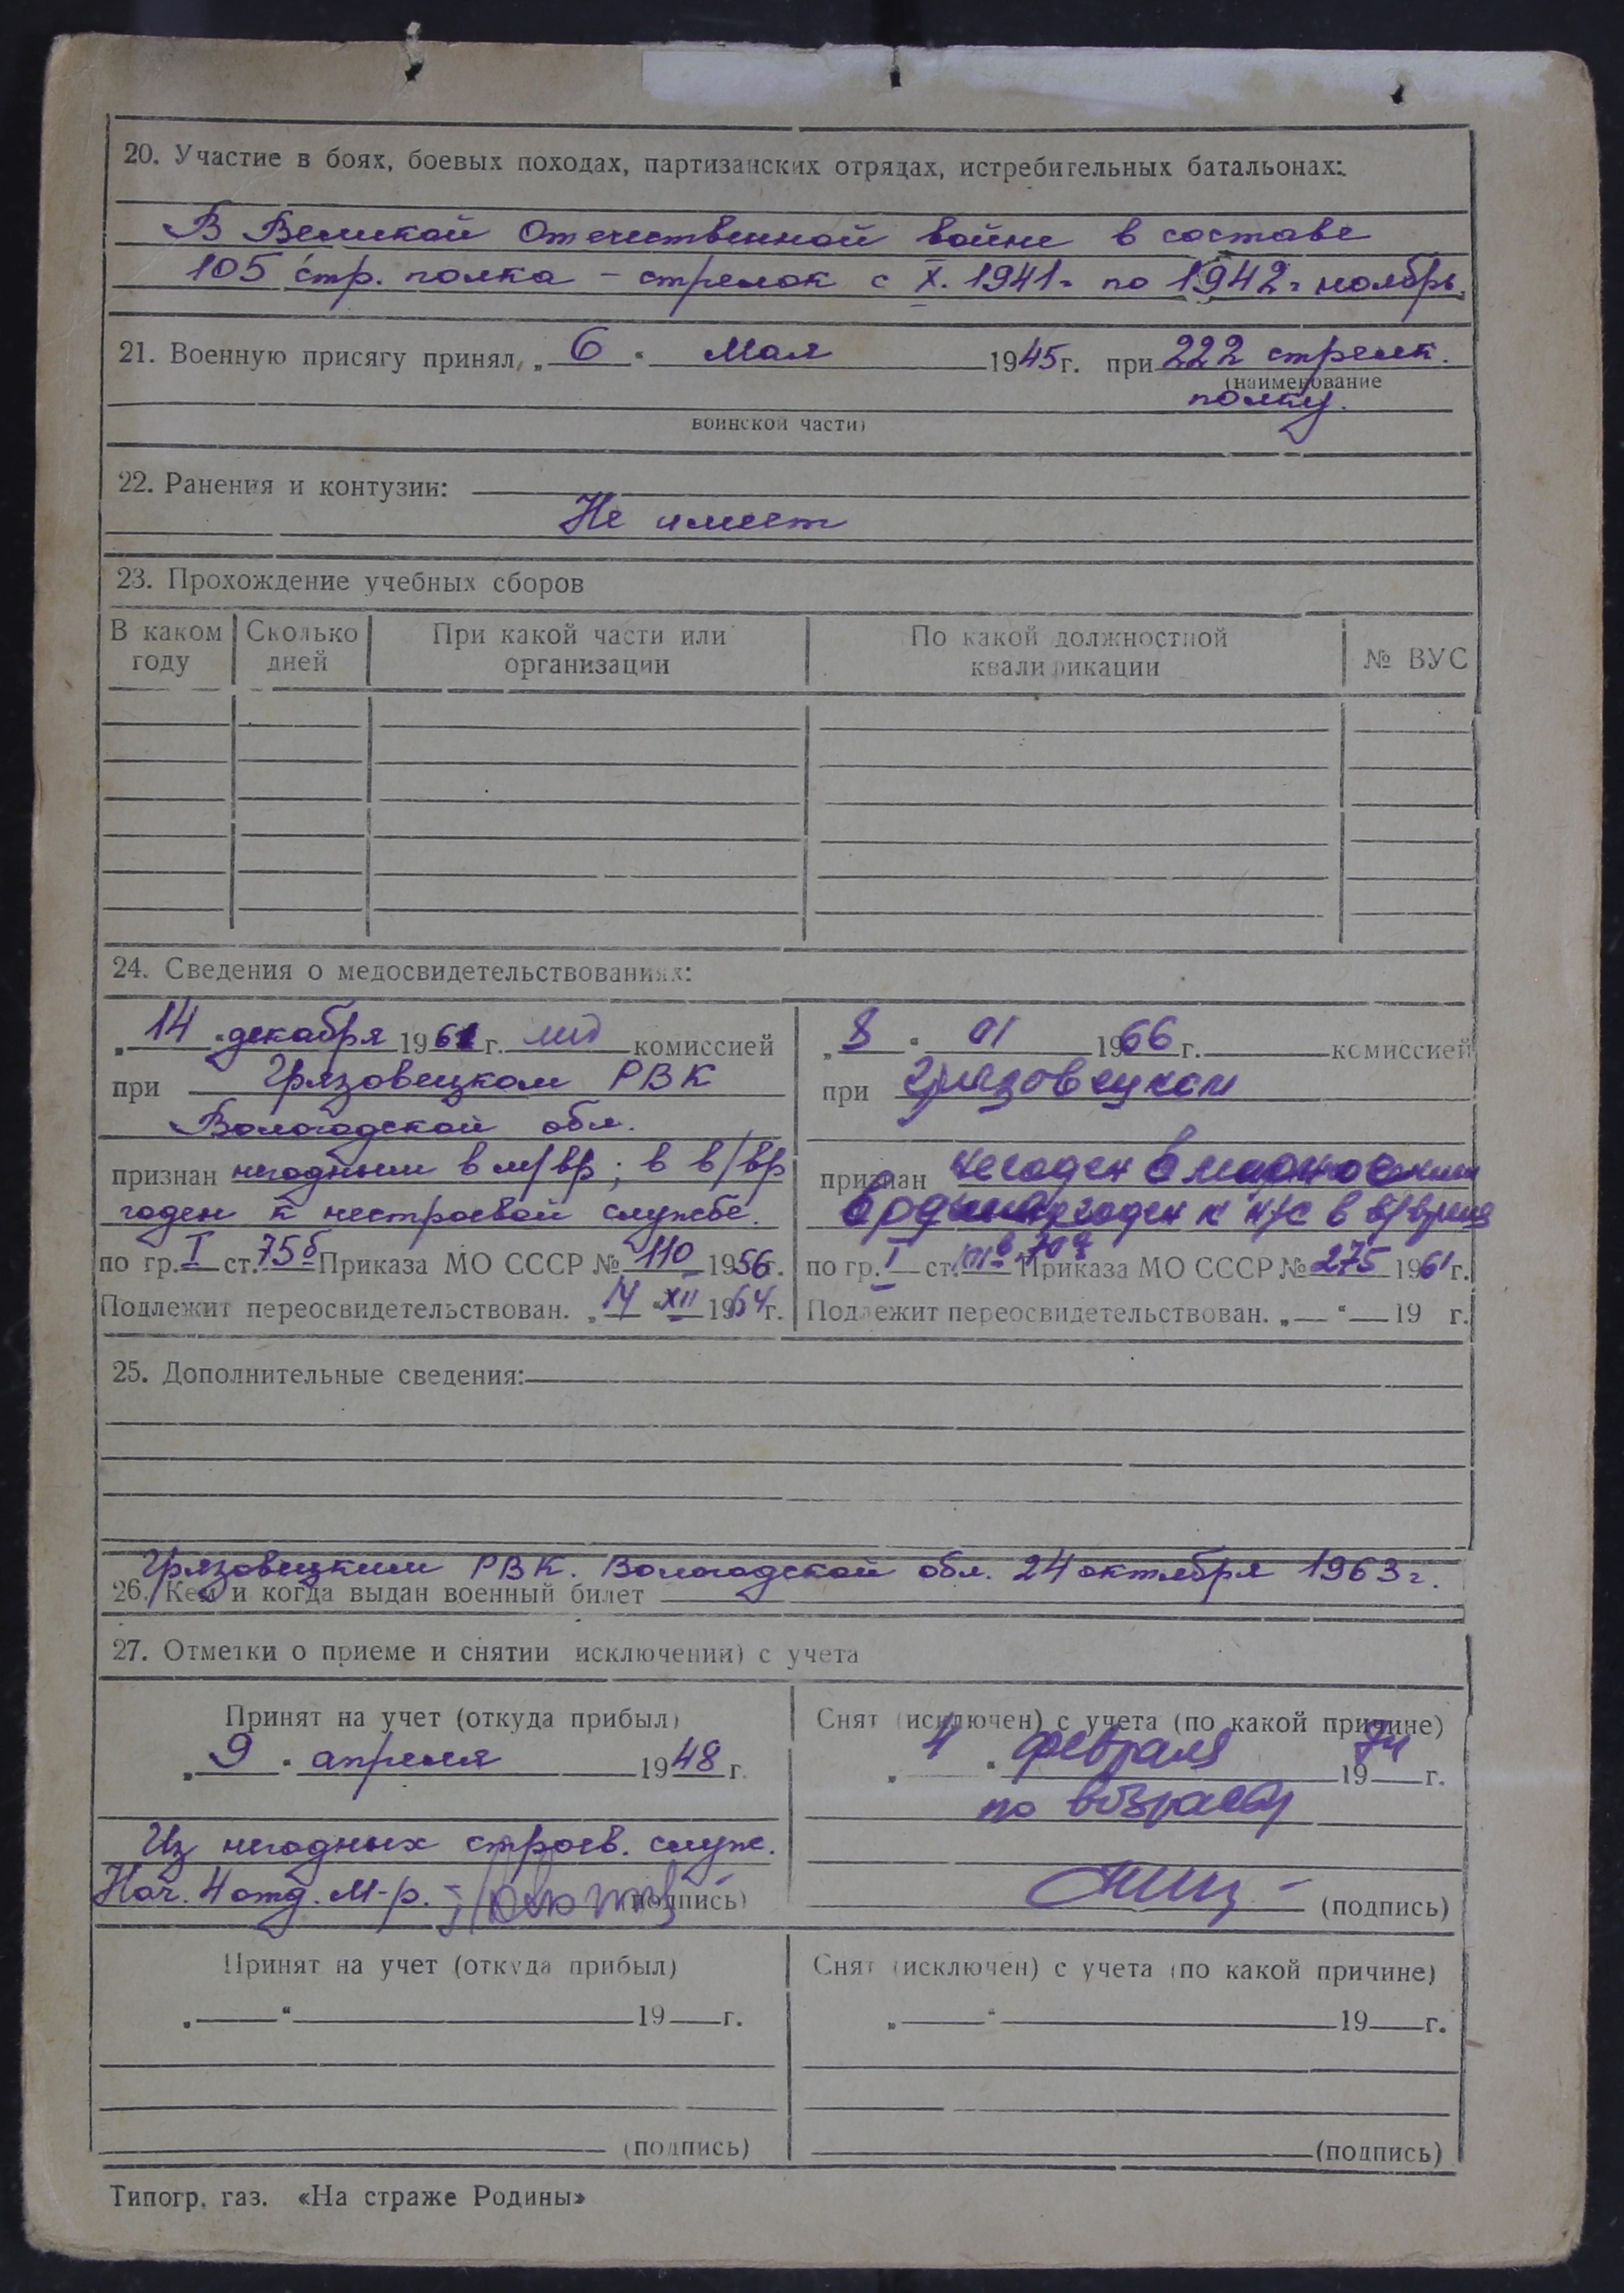 20. Участие в боях, боевых походах, партизанских отрядах, истребительных батальонах:
В Великой Отечественной войне в составе
105 стр. полка – стрелок с X. 1941г по 1942г ноябрь.
21. Военную присягу принял, „ 6 “ Мая 1945г. при 222 стрелк.
(наименование
полку.
воинской части)
22. Ранения и контузии:
Не имеет
23. Прохождение учебных сборов
В каком году
Сколько дней
При какой части или организации
По какой должностной квалификации
№ ВУС
24. Сведения о медосвидетельствованиях:
„ 14 “ декабря 1961 г. комиссией
при Грязовецком РВК
Вологодской обл.
признан негодным в м/вр; в в/вр
годен к нестроевой службе.
по гр. I ст. 75б Приказа МО СССР № 110 1956г.
Подлежит переосвидетельствован. „ 14 “ XII 1964г.
„ 8 “ 01 1966 г. комиссией
при Грязовецком
признан негоден в
годен к н/с в в/время
по гр. I ст. Приказа МО СССР № 275 1961г.
Подлежит переосвидетельствован. „ “ 19 г.
25. Дополнительные сведения:
Грязовецким РВК. Вологодской обл. 24 октября 1963г.
26. Кем и когда выдан военный билет
27. Отметки о приеме и снятии исключении) с учета
Принят на учет (откуда прибыл)
„ 9 “ апреля 1948 г.
Из негодных строев. служ.
Нач. 4 отд. М-р. – (подпись)
Снят (исключен) с учета (по какой причине)
„ 4 “ февраля 1974 г.
по возрасту
(подпись)
Принят на учет (откуда прибыл)
„ “ 19 г.
(подпись)
Снят (исключен) с учета (по какой причине)
„ “ 19 г.
(подпись)
Типогр. газ. «На страже Родины»